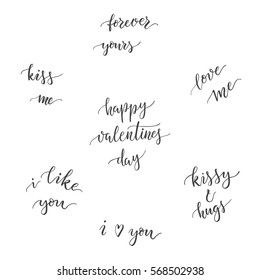 forever
yours
kiss
me
love
me
happy
valentines
day
i like
you
kissy
&
hugs
i ♡ you
shutterstock.com · 568502938